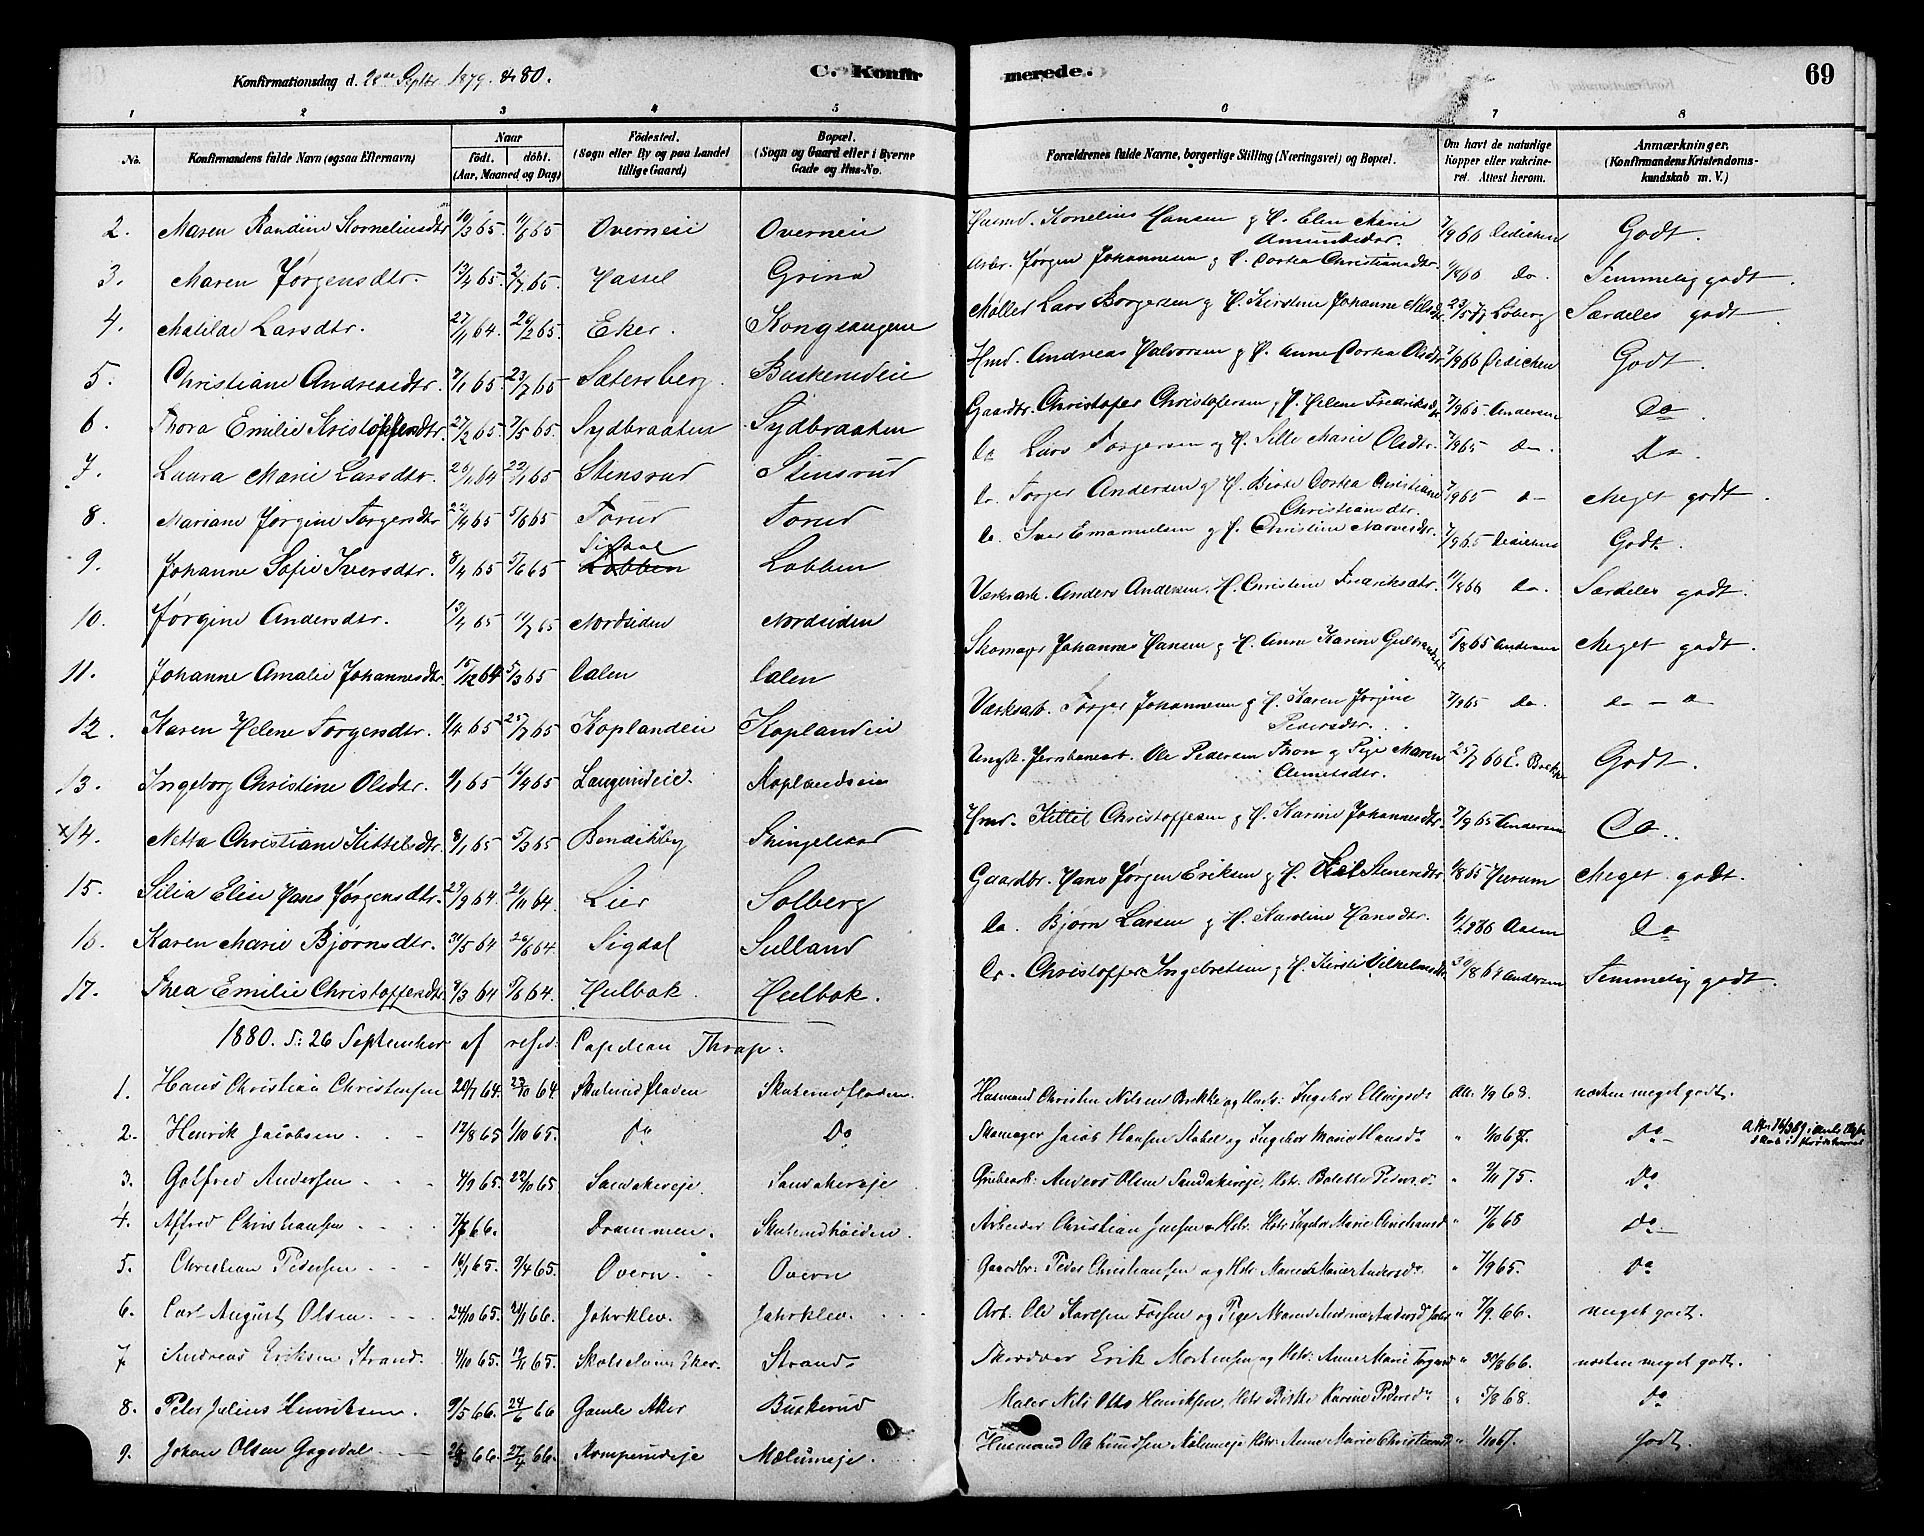 Konfirmationsdag d. 28de Septbr. 1879. & 80. C. Konfirmerede. 69
1 2 3 4 5 6 7 8
No. Konfirmandens fulde Navn (ogsaa Efternavn) Naar født. døbt. (Aar, Maaned og Dag) Fødested. (Sogn eller By og paa Landet tillige Gaard) Bopæl. (Sogn og Gaard eller i Byerne Gade og Hus-No. Forældrenes fulde Navne, borgerlige Stilling (Næringsvei) og Bopæl. Om havt de naturlige Kopper eller vakcineret. Attest herom. Anmærkninger. (Konfirmandens Kristendomskundskab m. V.)
2. Maren Randine Korneliusdtr 19/3 65 Overneie Overneie Husmd. Kornelius Hansen g H. Elen Marie Amundsdtr. 7/9 66 Dedichen Godt.
3. Maren Jørgensdtr. 13/4 65. 2/7 65. Hassel Grina Jørgen Johannesen g H. Dortea Christiansdtr. Do. Temmelig godt.
4. Matilde Larsdtr. 27/11 64. 26/2 65. Eker. Kongsaugene Møller Lars Borgersen g H. Kirstine Johanne Nilsdtr. Løberg Særdeles godt
5. Christiane Andreasdtr. 7/1 65 23/7 65 Sætersberg. Buskerudeie Hmd. Andreas Halvorsen g H. Anne Dortea Olsdtr. 7/9 66 Dedichen Godt.
6. Thora Emilie Kristoffersdtr. 27/2 65. 7/5 65. Sydbraaten Sydbraaten Gaardbr. Christofer Christofersen g H. Helene Fredriksdtr 7/9 65 Andersen Do
7. Laura Marie Larsdtr. 20/11 64 22/1 65 Stensrud Stensrud Do Lars Torgersen g H. Sille Marie Olsdtr. 7/9 65 Do. Do.
8. Mariane Jørgine Torgersdtr 22/4 65 5/6 65 Torud Torud Do. Torger Andersen g H. Birte Dortea Christiane Christiansdtr. 7/9 65 Do Meget godt.
9. Johanne Sofie Iversdtr. 8/4 65 5/6 65 Sigdal Lobben Lobben Do. Iver Emanuelsen g H. Christine Narvesdtr. 7/9 65 Dedichen Godt.
10. Jørgine Andersdtr. 13/4 65 11/7 65 Nordsiden Nordsiden Værksarb. Anders Andersen, H. Christine Fredriksdtr. 11/8 66 Do. Særdeles godt.
11. Johanne Amalie Johannesdtr. 15/12 64 5/3 65 Dalen Dalen Skomager Johannes Hansen g H. Anne Karine Gulbrandsdtr. 5/8 65 Andersen Meget godt.
12. Karen Helene Torgersdtr. 1/4 65 25/7 65 Koplandeie Koplandeie Værksarb. Torger Johannesen g H. Karen Jørgine Pedersdtr. 7/9 65 Do. Do - o
13. Ingeborg Christine Olsdtr. 9/1 65 17/4 65 Langerudeie. Koplandseie Ungk. Jernbanearb. Ole Pedersen Thon g Pige Maren 25/7 66 E. Brekke Godt.
x 14. Netta Christiane Kittilsdtr. 8/1 65 5/3 65 Bendikby Skinjelstad Hmd. Kittil Christoffersen g H. Karine Johannesdtr. 7/9 65 Andersen Do.
15. Silia Elise Hans Jørgensdtr. 29/9 64. 20/11 64. Lier Solberg Gaardbr. Hans Jørgen Eriksen g H. Stenersdtr. 1/8 65 Hurum Meget godt.
16. Karen Marie Bjørnsdtr. 30/5 64 26/6 64 Sigdal Sulland Do. Bjørn Larsen g H. Karoline Hansdtr. Aasen Do
17. Thea Emilie Christoffersdtr. 9/3 64 5/6 64. Hulbak. Hulbak. Do. Christoffer Ingebretsen g H. Kersti Vilhelmsdtr. 30/8 64 Andersen Temmelig godt.
1880. d: 26 September af resid. Capellan Thrap:
1. Hans Christian Christensen 20/7 64. 23/10 64 Skuterudfladen Skuterudfladen. Husmand Christen Nilsen Brekke og Hustr: Ingebor Ellingsdr Att: 1/9 68. næsten meget godt.
2. Henrik Jacobsen 12/8 65 1/10 65. Do Do Skomager Jacob Hansen Stabel og Ingebor Marie Hansdr " 1/10 67. Do
3. Gotfred Andersen 4/9 65. 22/10 65 Sandakereje. Sandakereje Grubearb: Anders Olsen Sandakereje, Hstr. Bolette Pedersdr " 2/11 75. Do
4. Alfred Christiansen 7/7 66. Drammen. Skuterudhøiden. Arbeider Christian Jensen Hstr Ingebor Marie Christiansd " 17/6 68 Do
5. Christian Pedersen 16/1 65. 9/4 65. Overn. Overn Gaardbr: Peder Christiansen og Hstr. Maren Marie Andersdr " 7/9 65. Do
6. Carl August Olsen. 24/10 65. 21/1 66. Jahrklev. Jahrklev. Arb. Ole Karlsen Fossen og Pige Maren Andrine Andersd " 7/9 66. meget godt.
7 Andreas Eriksen Strand. 4/10 65. 19/11 65. Skotselven Eker. Strand. Skrædder Erik Mortensen og Hstr. Anne Marie " 30/8 66. næsten meget godt.
8. Peter Julius Henriksen. 9/5 66. 24/6 66 Gamle Aker Buskerud Maler Nils Otto Henriksen, Hstr Birthe Karine Pedersdr " 5/8 68. Do
9. Johan Olsen Gagsdal 26/3 66. 27/4 66. Komperudeje Mælumseje. Husmand Ole Knudsen Mælumseje Hstr. Anne Marie Christiansd " 1/10 67. Godt.